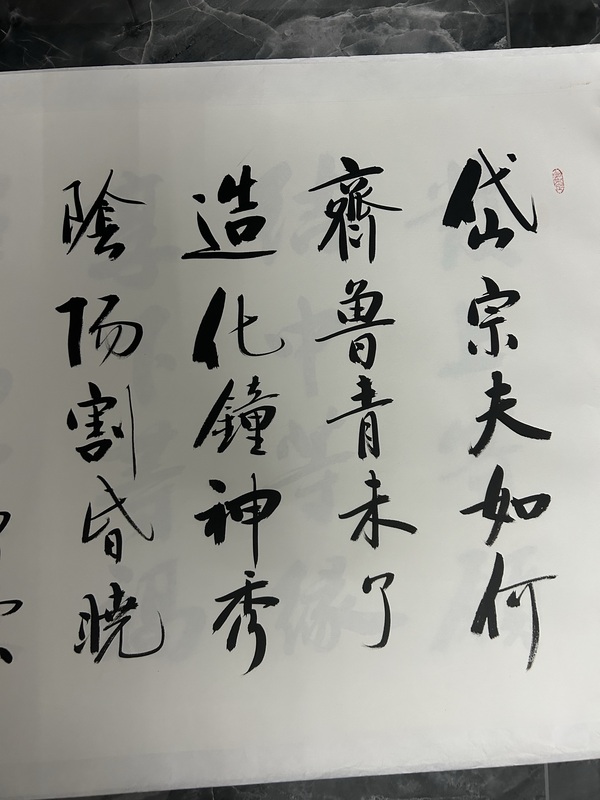 岱宗夫如何
齊魯青未了
造化鐘神秀
陰陽割昏曉